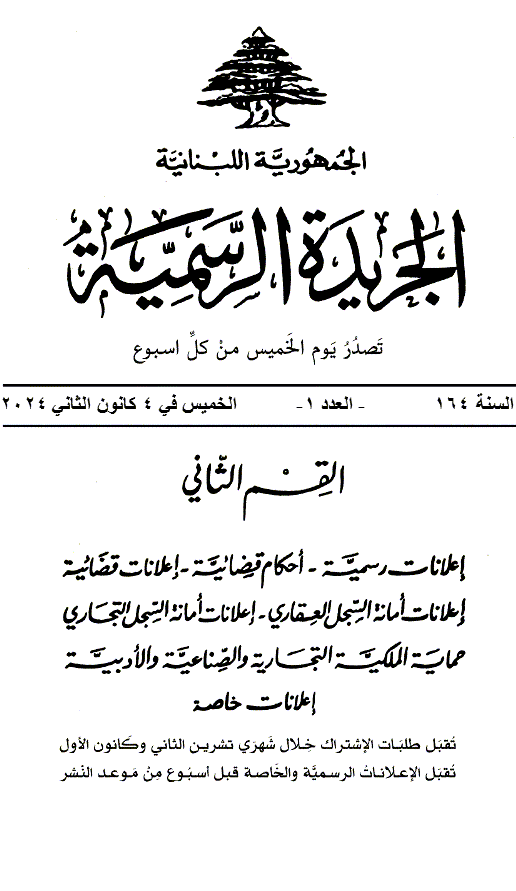 الجُمهُوريَّة اللبْنانيَّة
الجَريدَة الرسَّميَّة
تَصدُرُ يَوم الخَميس منْ كلِّ اسبوع
السنة ١٦٤ - العدد ١- الخميس في ٤ كانون الثاني ٢٠٢٤
القِسْم الثّاني
إعلانات رسميَّة - أحكام قضائيَّة - إعلانات قضائية
إعلانات أمانة السِّجل العقاري - إعلانات أمانة السِّجل التجاري
حماية الملكيَّة التجارية والصِّناعيَّة والأدبيَّة
إعلانات خاصة
تُقبَل طلبَات الإشتراك خِلال شَهرَي تشرين الثاني وكَانون الأول
تُقبَل الإعلاناتُ الرسميَّة والخَاصة قبل أسبُوع مِنْ مَوعد النَشر